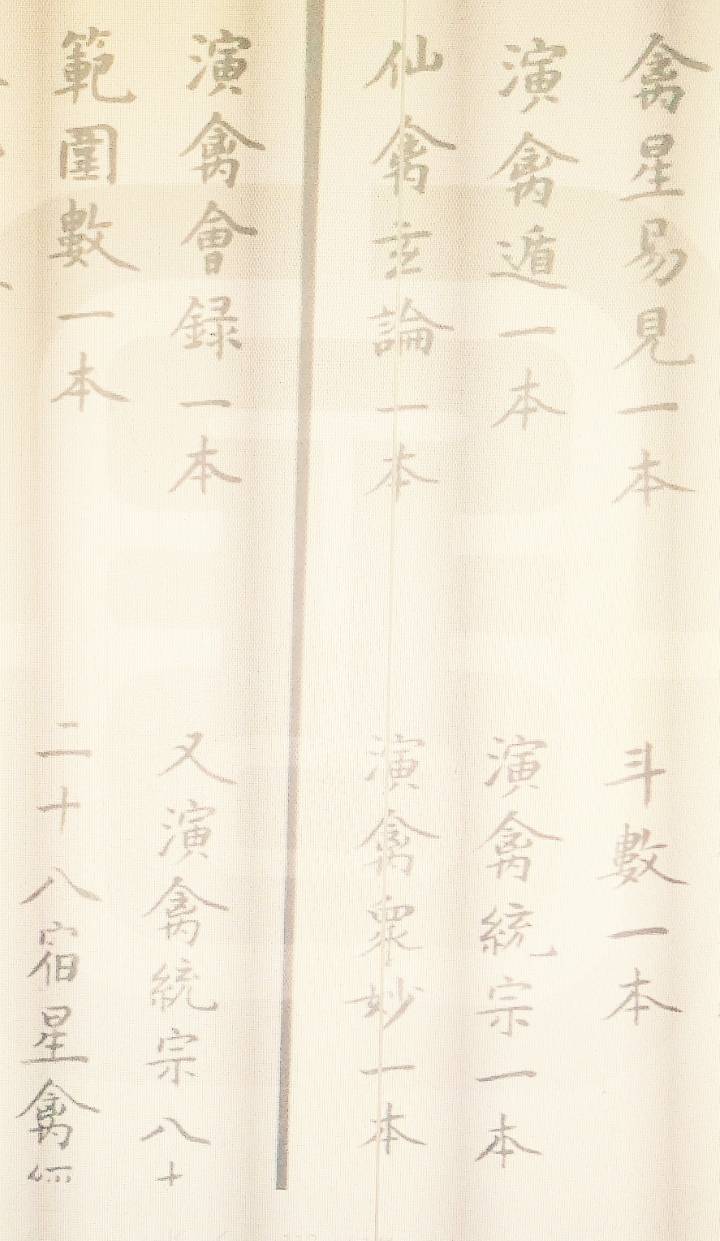 禽星易見一本
斗數一本
演禽遁一本
演禽統宗一本
仙禽並論一本
演禽衆妙一本
演禽會録一本
又演禽統宗八
範圍數一本
二十八宿星禽